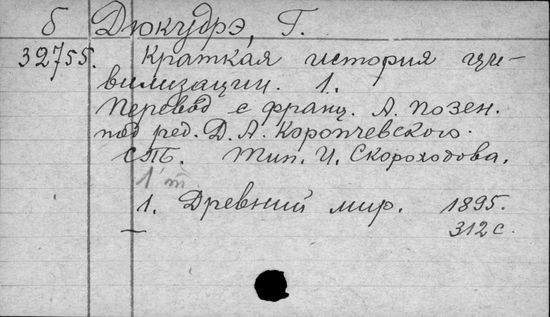 б Дюкудрэ, Г.
32755. Краткая история ци-
вилизации. 1.
Перевод с франц. А. Позен.
под ред. Д. А. Коропчевского.
СПб. Тип. И. Скороходова.
1 т
1. Древний мир. 1895.
312 с.